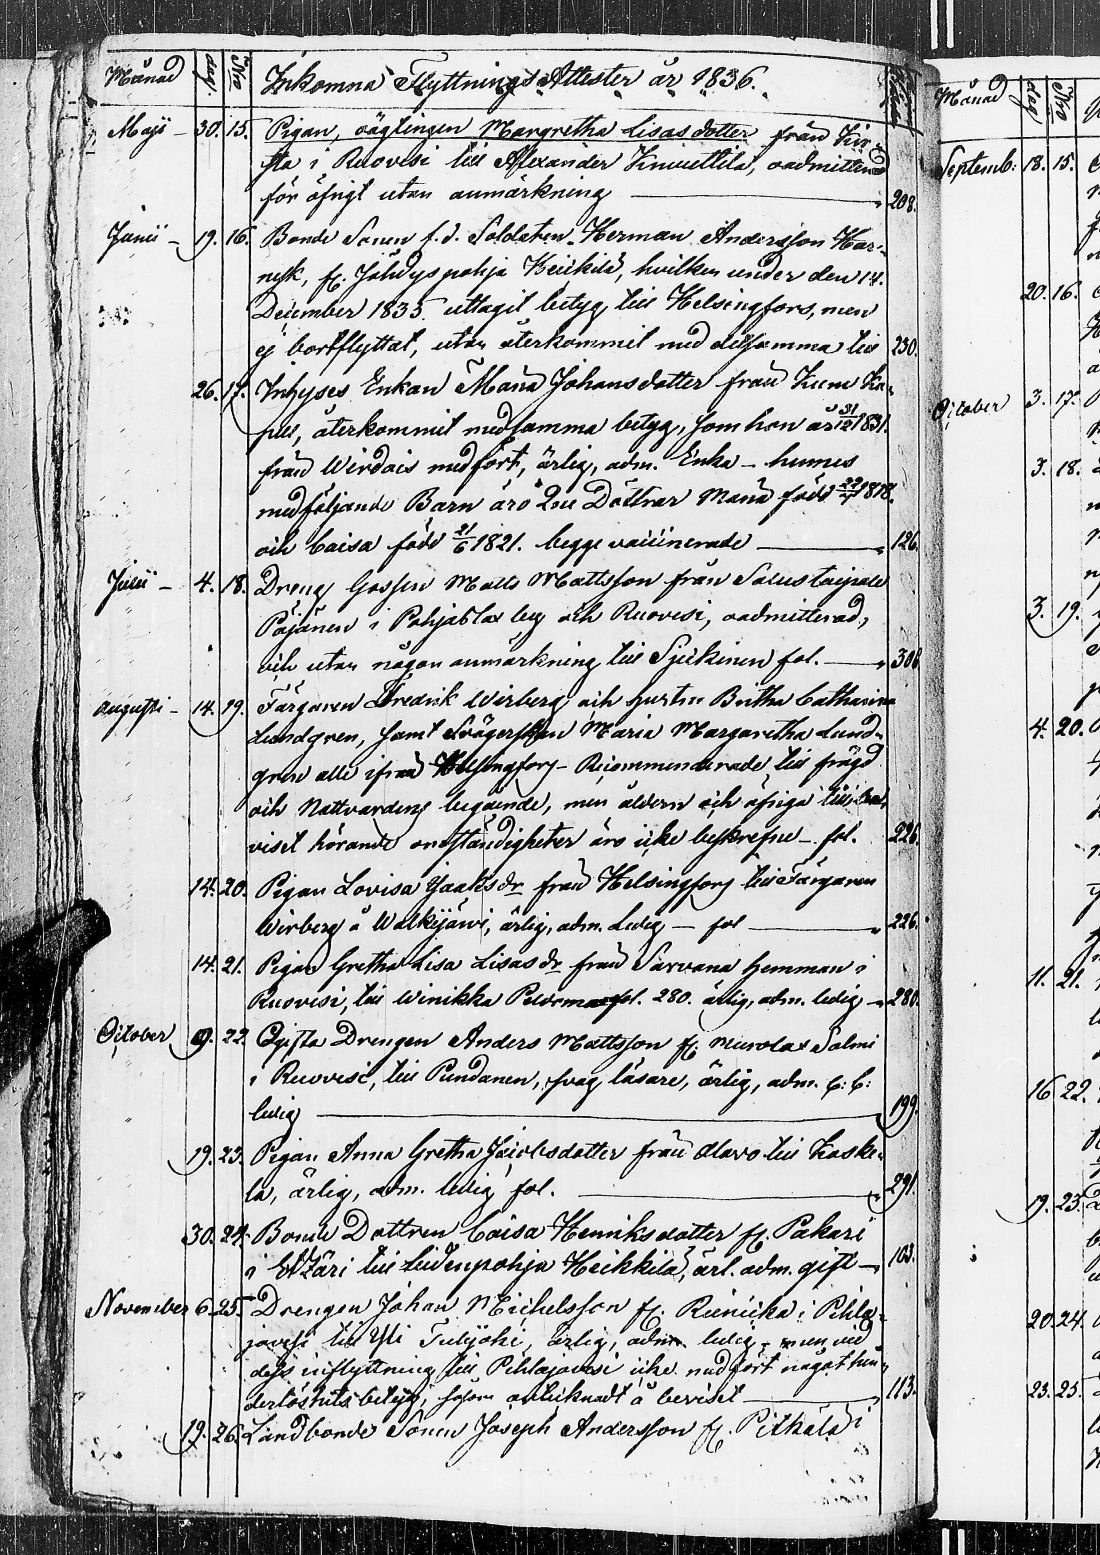 Månad dag No Inkomna Flyttnings Attester år 1836.
Maji – 30. 15. Pigan, oägtingen Margretha Lisasdotter från
sta i Ruovesi till Alexander Knuuttila, oadmitterad
för öfrigt utan anmärkning — 208.
Junii – 19. 16. Bonde Sonen f.d. Soldaten Herman Andersson Har-
nesk, fr. Jähdyspohja Heikkilä, hvilken under den 14.
December 1835 uttagit betyg till Helsingfors, men
ej bortflyttat, utan återkommit med detsamma till 230.
26. 17. Inhyses Enkan Maria Johansdotter från Ka-
återkommit med samma betyg, som hon är 31/12 1831.
från Wirdois medfört, ärlig, adm. Enka – hennes
medföljande Barn äro 2ne Döttrar Maria född 22/7 1818.
och Caisa född 21/6 1821. begge vaccinerade — 126.
Julii – 4. 18. Dreng Gossen Matts Mattsson från Salus taipale
Päjänen i Pohjaslax by och Ruovesi, oadmitterad,
och utan någon anmärkning till Sjukinen fol. — 306
Augusti – 14. 19. Färgaren Fredrik Wirberg och hustru Britha Catharina
Lundgren, samt Svägerskan Maria Margaretha Lund-
gren alle ifrån Helsingfors – Recommenderade till frägd
och Nattvardens begående, men åldern och öfriga till
viset hörande omständigheter äro icke beskrefne – fol. 226.
14. 20. Pigan Lovisa Jaaksdr från Helsingfors till Färgaren
Wirberg å Walkijärvi, ärlig, adm. ledig – fol — 226.
14. 21. Pigan Gretha Lisa Lisasdr från Sarvana hemman i
Ruovesi, till Winikka fol. 280. ärlig, adm. ledig – 280.
October 9. 22. Ogifta Drengen Anders Mattsson fr. Murolax Salmi
i Ruovesi, till Pundanen, svag läsare, ärlig, adm.
ledig — 199.
19. 23. Pigan Anna Gretha Jacobsdotter från Alavo till Koske-
la, ärlig, adm. ledig fol. — 291.
30. 24. Bonde Dottren Caisa Henriksdotter fr. Pakari
i Etzäri till Liedenpohja Heikkilä, ärl. adm. gift – 103.
November 6. 25. Drengen Johan Michelsson fr. i Pihla-
javesi till Yli Tulijoki, ärlig, adm. ledig, men ved
dess inflyttning till Pihlajavesi icke medfört något hin-
derlöshets betyg, som antecknadt å beviset — 113.
19. 26. Landbonde Sonen Joseph Andersson fr. Pitkälä i
Månad dag No
Septemb: 18. 15.
20. 16.
October 3. 17.
3. 18.
3. 19.
4. 20.
11. 21.
16 22.
19. 23.
20. 24.
23. 25.